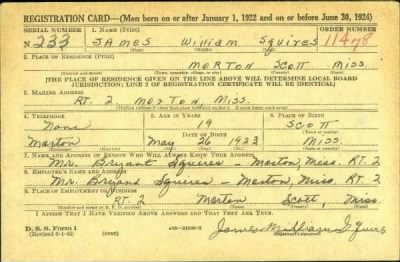 REGISTRATION CARD—(Men born on or after January 1, 1922 and on or before June 30, 1924)
SERIAL NUMBER 1. NAME (Print) ORDER NUMBER
N 233 JAMES William Squires 11478
(First) (Middle) (Last)
2. PLACE OF RESIDENCE (Print)
MORTON Scott Miss.
(Number and street) (Town, township, village, or city) (County) (State)
[THE PLACE OF RESIDENCE GIVEN ON THE LINE ABOVE WILL DETERMINE LOCAL BOARD
JURISDICTION; LINE 2 OF REGISTRATION CERTIFICATE WILL BE IDENTICAL]
3. MAILING ADDRESS
RT. 2 Morton, Miss.
4. TELEPHONE 5. AGE IN YEARS 6. PLACE OF BIRTH
None 19 Scott
DATE OF BIRTH
Morton May 26 1923 Miss.
7. NAME AND ADDRESS OF PERSON WHO WILL ALWAYS KNOW YOUR ADDRESS
Mr. Bryant Squires – Morton, Miss. RT. 2
8. EMPLOYER'S NAME AND ADDRESS
Mr. Bryant Squires – Morton, Miss. RT 2
9. PLACE OF EMPLOYMENT OR BUSINESS
RT. 2 Morton Scott, Miss.
(Number and street or R. F. D. number) (Town) (County) (State)
I AFFIRM THAT I HAVE VERIFIED ABOVE ANSWERS AND THAT THEY ARE TRUE.
D. S. S. Form 1
(Revised 6-1-42) (over)
James William Squires